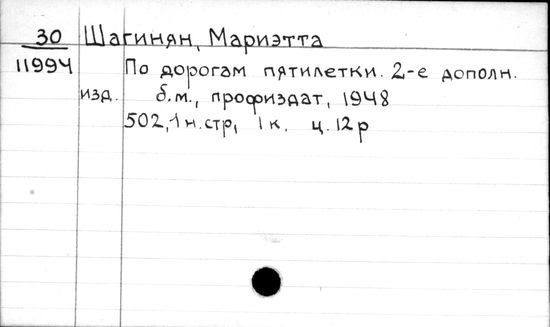 30 Шагинян, Мариэтта
11994 По дорогам пятилетки. 2-е дополн.
изд. б.м., профиздат, 1948
502, 1 н. стр, 1 к. ц. 12 р